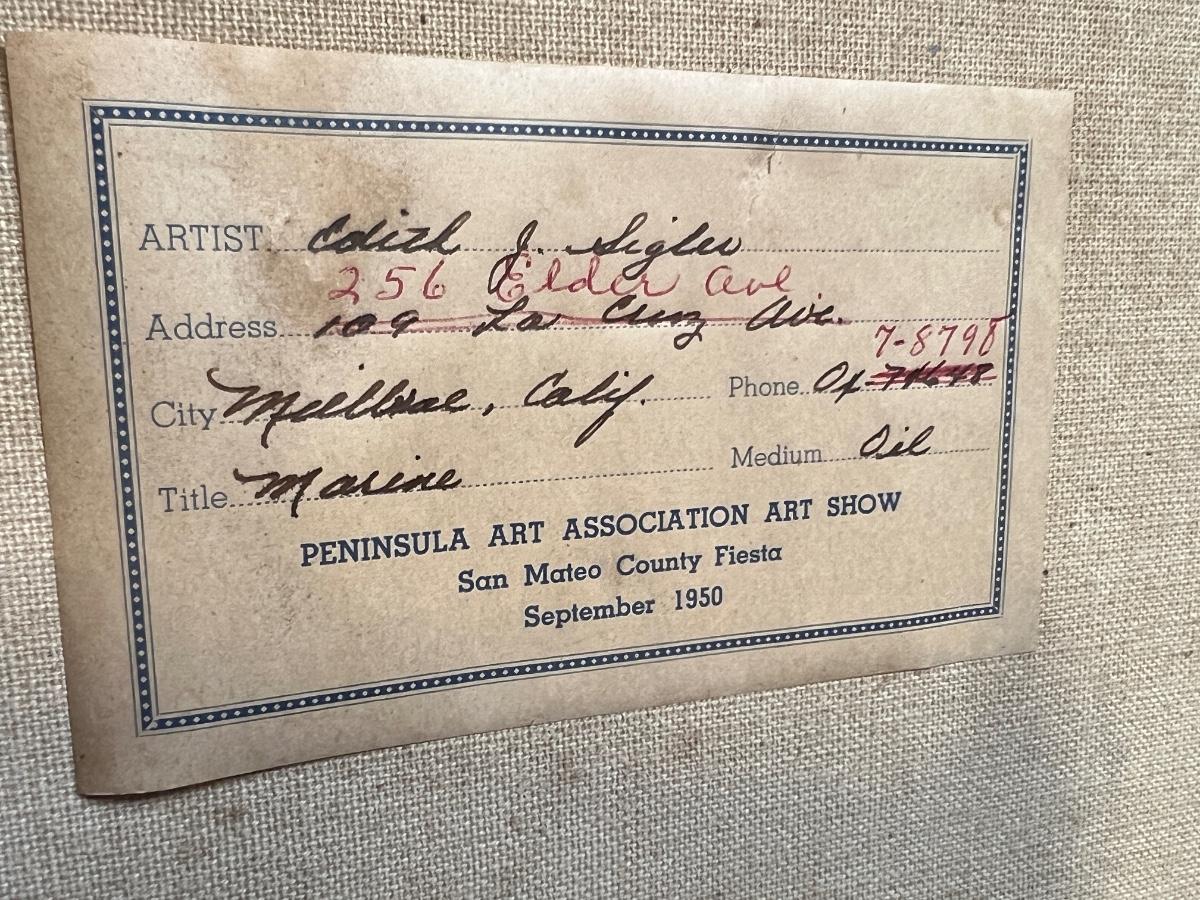 ARTIST Edith J. Sigler
256 Elder Ave
Address 109 La Cruz Ave.
7-8798
City Millbrae, Calif. Phone Ox-
Title Marine Medium Oil
PENINSULA ART ASSOCIATION ART SHOW
San Mateo County Fiesta
September 1950